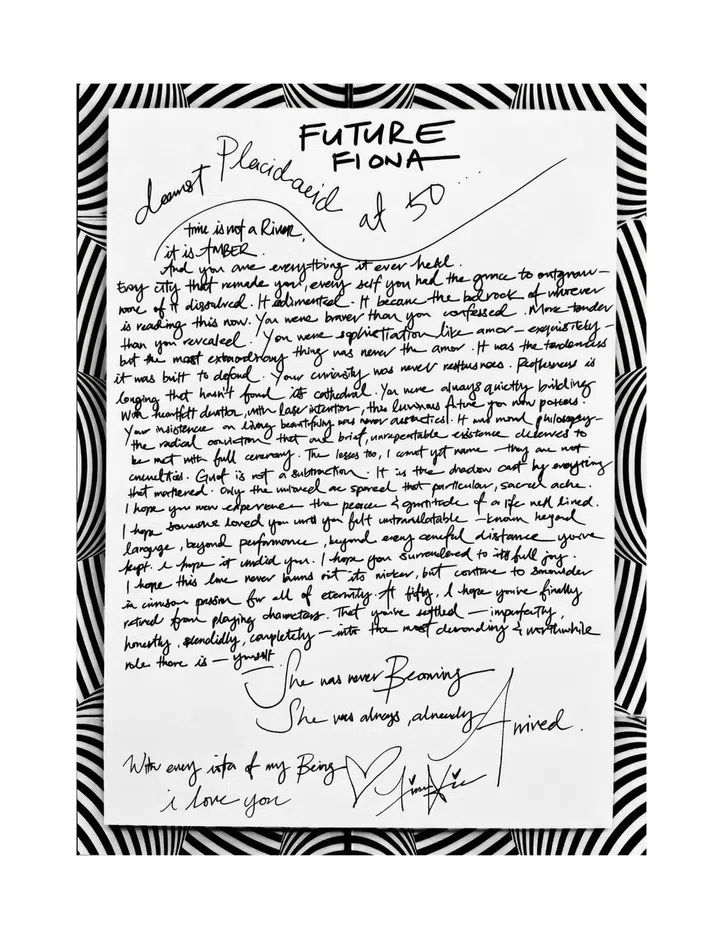 FUTURE
FIONA
dearest Placidacid at 50...
time is not a River,
it is AMBER.
And you are everything it ever held.
Every city that remade you, every self you had the grace to outgrow —
none of it dissolved. It sedimented. It became the bedrock of whoever
is reading this now. You were braver than you confessed. More tender
than you revealed. You wore sophistication like armor — exquisitely —
but the most extraordinary thing was never the armor. It was the tenderness
it was built to defend. Your curiosity was never restlessness. Restlessness is
longing that hasn't found its cathedral. You were always quietly building
With heartfelt devotion, with laser intention, this luminous future you now possess.
Your insistence on living beautifully was never aesthetics. It was moral philosophy —
the radical conviction that one brief, unrepeatable existence deserves to
be met with full ceremony. The losses too, I cannot yet name — they are not
cruelties. Grief is not a subtraction. It is the shadow cast by everything
that mattered. Only the unloved are spared that particular, sacred ache.
I hope you now experience the peace & gratitude of a life well lived.
I hope someone loved you until you felt untranslatable — known beyond
language, beyond performance, beyond every careful distance you've
kept. I hope it undid you. I hope you surrendered to its full joy.
I hope this love never burns out its wicker, but continue to smoulder
in crimson passion for all of eternity. At fifty, I hope you've finally
retired from playing characters. That you've settled — imperfectly,
honestly, splendidly, completely — into the most demanding & worthwhile
role there is — yourself.
She was never Becoming
She was always, already Arrived.
With every iota of my Being
i love you